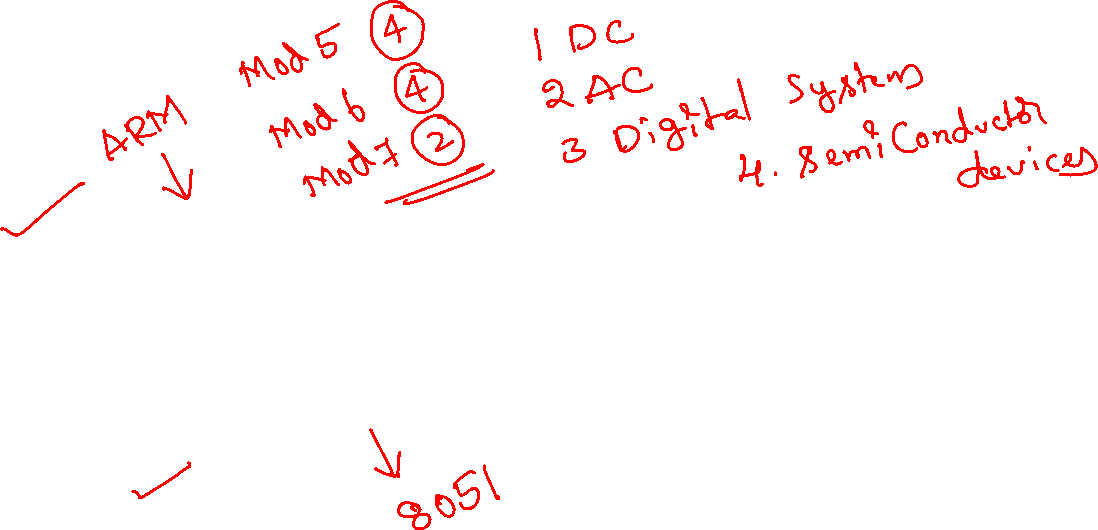 ARM
Mod 5 4
Mod 6 4
Mod 7 2
1 DC
2 AC
3 Digital Systems
4. Semi Conductor
devices
8051